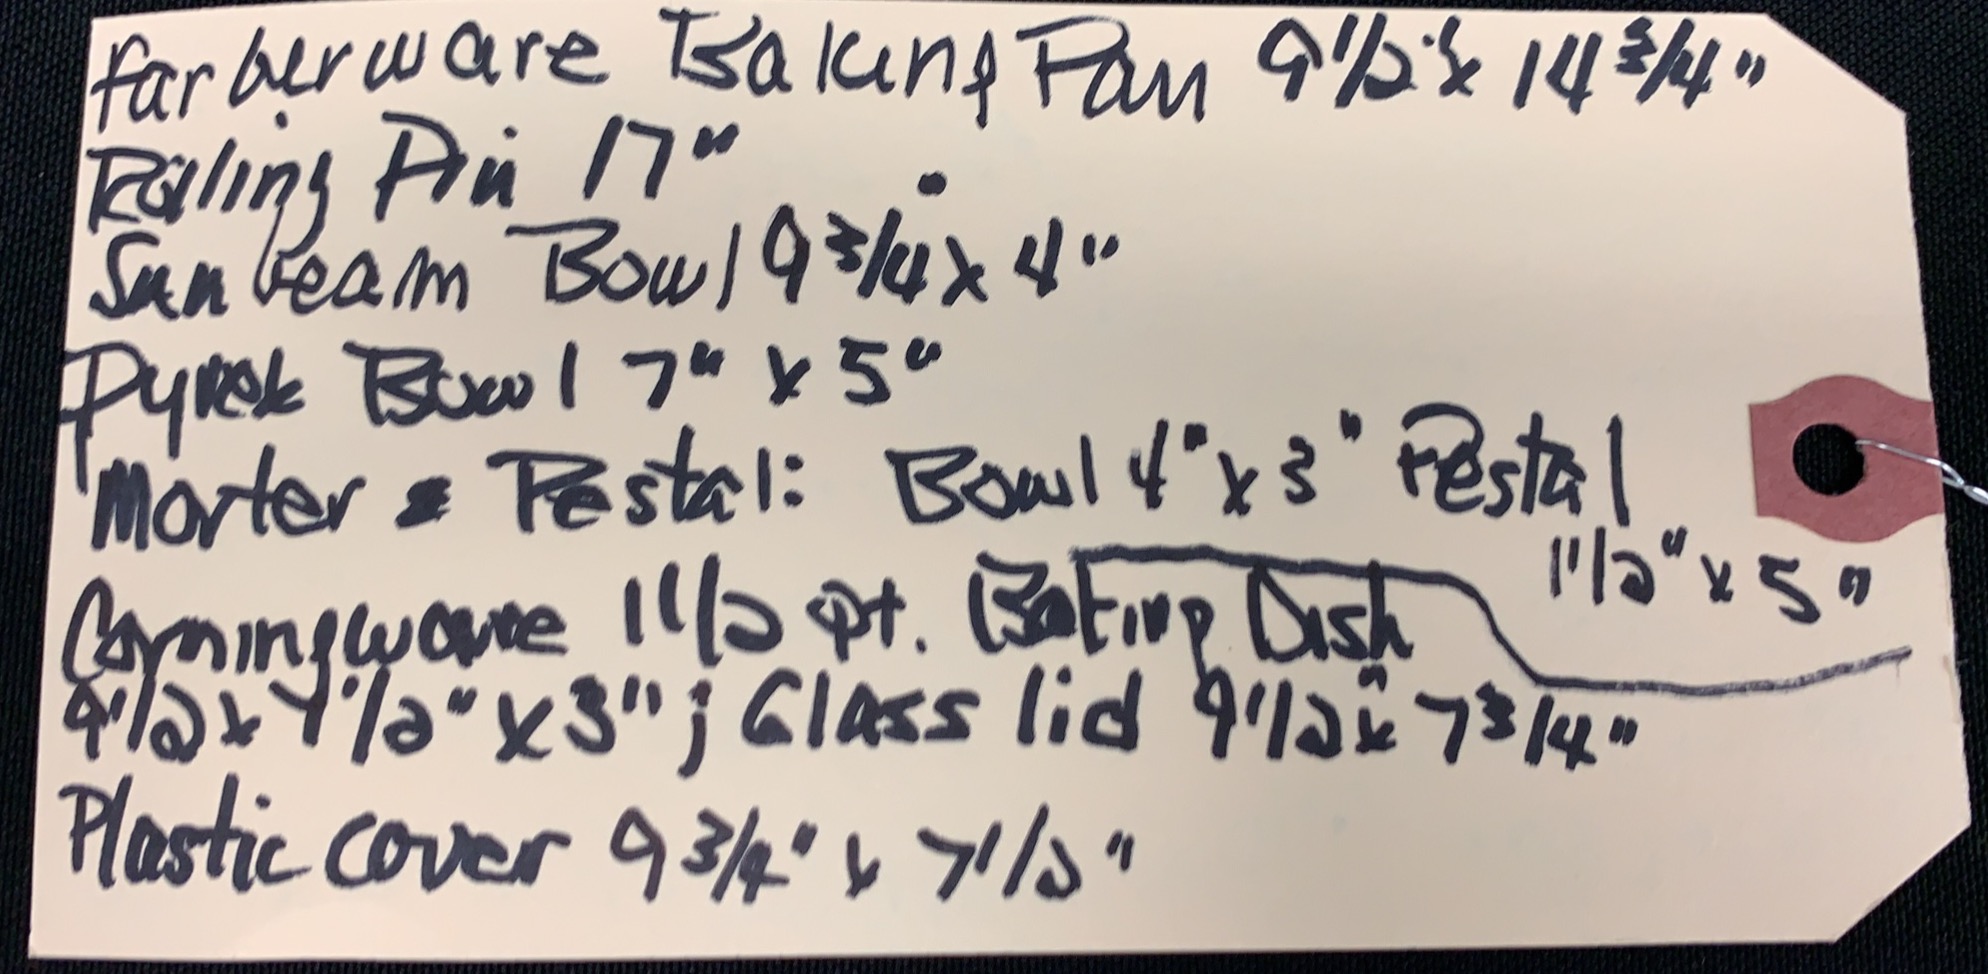 Farberware Baking Pan 9 1/2" x 14 3/4"
Rolling Pin 17"
Sunbeam Bowl 9 3/4 x 4"
Pyrex Bowl 7" x 5"
Morter & Pestal: Bowl 4" x 3" Pestal
1 1/2" x 5"
Corningware 1 1/2 qt. Baking Dish
9 1/2 x 7 1/2" x 3"; Glass lid 9 1/2" x 7 3/4"
Plastic cover 9 3/4" x 7 1/2"